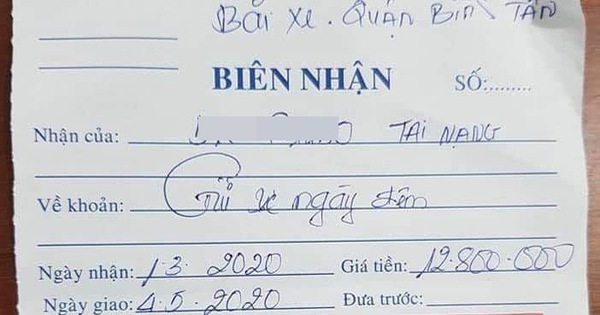 Bãi xe. QUẬN BÌNH TÂN
BIÊN NHẬN SỐ:........
Nhận của: TAI NẠNG
Về khoản: Giữ xe ngày đêm
Ngày nhận: 1.3.2020 Giá tiền: 12.800.000
Ngày giao: 4.5.2020 Đưa trước: